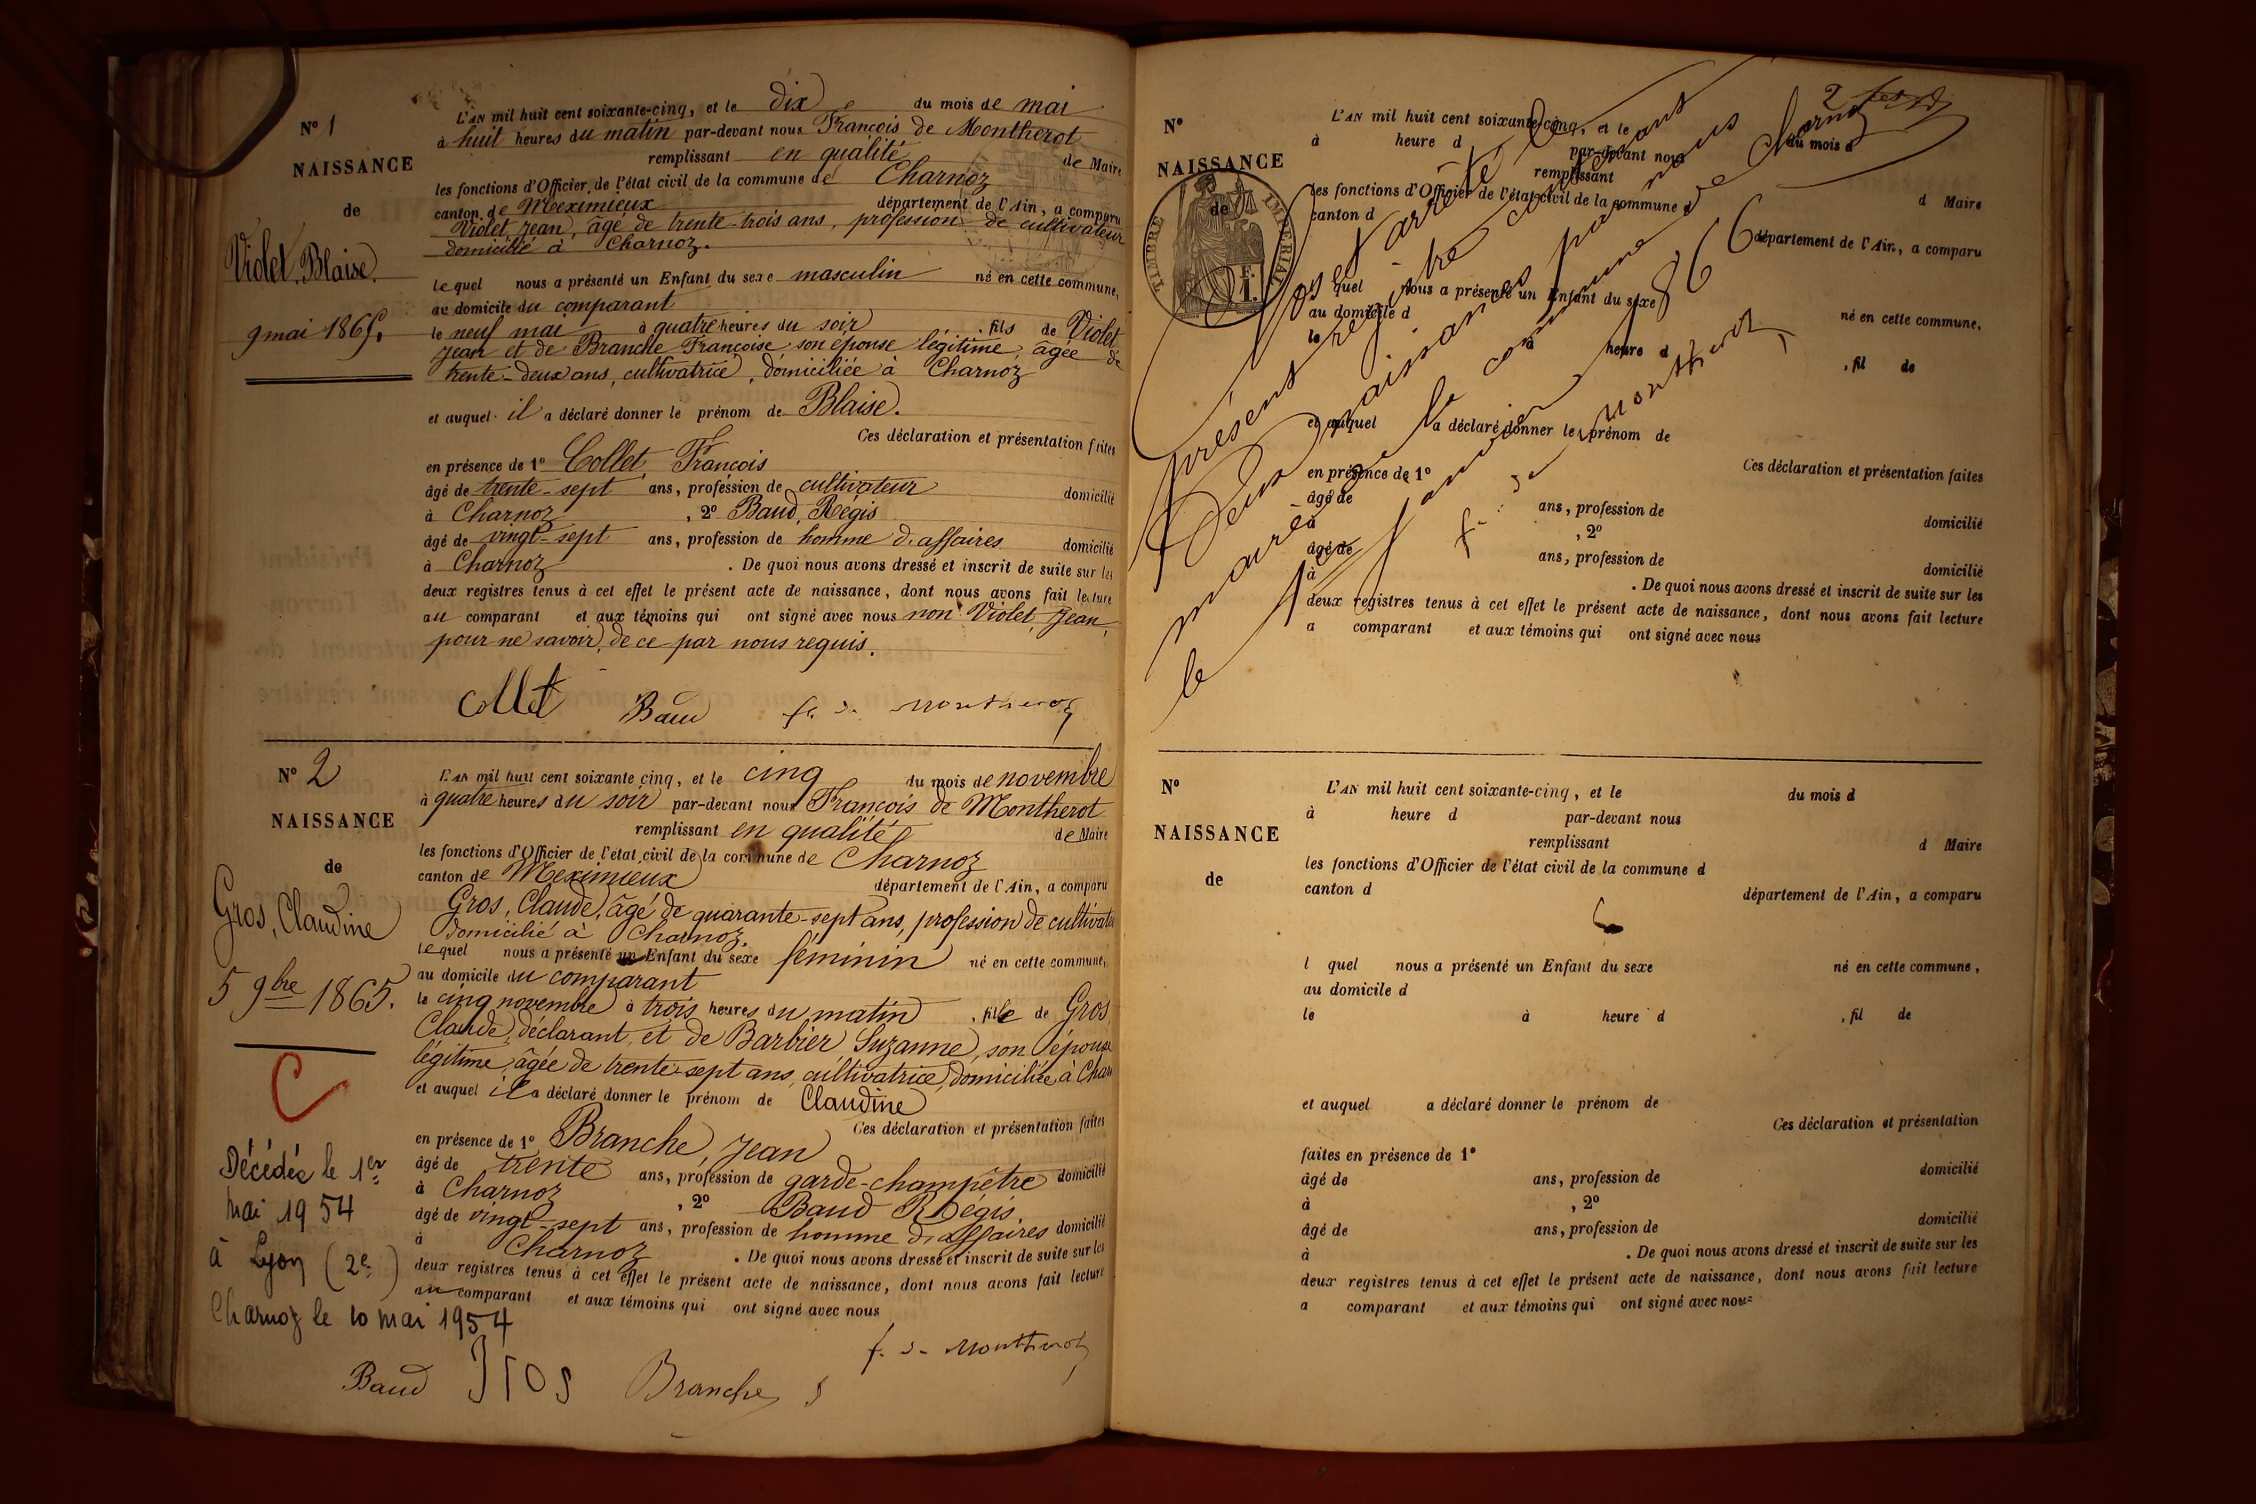 L'AN mil huit cent soixante-cinq, et le dix du mois de mai
N° 1
à huit heures du matin par-devant nous François de Montherot
NAISSANCE
remplissant en qualité de Maire
les fonctions d'Officier de l'état civil de la commune de Charnoz
de
canton de Meximieux département de l'Ain, a comparu
Violet Jean, âgé de trente-trois ans, profession de cultivateur
domicilié à Charnoz.
Violet, Blaise.
lequel nous a présenté un Enfant du sexe masculin né en cette commune,
au domicile du comparant
9 mai 1865.
le neuf mai à quatre heures du soir, fils de Violet
Jean et de Branche Françoise son épouse légitime, âgée de
trente-deux ans, cultivatrice, domiciliée à Charnoz
et auquel il a déclaré donner le prénom de Blaise.
Ces déclaration et présentation faites
en présence de 1° Collet, François
âgé de trente-sept ans, profession de cultivateur domicilié
à Charnoz, 2° Baud, Régis
âgé de vingt-sept ans, profession de homme d'affaires domicilié
à Charnoz. De quoi nous avons dressé et inscrit de suite sur les
deux registres tenus à cet effet le présent acte de naissance, dont nous avons fait lecture
au comparant et aux témoins qui ont signé avec nous non Violet, Jean,
pour ne savoir, de ce par nous requis.
Collet Baud f. de Montherot
N° 2
L'AN mil huit cent soixante cinq, et le cinq du mois de novembre
à quatre heures du soir par-devant nous François de Montherot
NAISSANCE
remplissant en qualité de Maire
les fonctions d'Officier de l'état civil de la commune de Charnoz
de
canton de Meximieux département de l'Ain, a comparu
Gros, Claude, âgé de quarante-sept ans, profession de cultivateur
domicilié à Charnoz.
Gros, Claudine
lequel nous a présenté un Enfant du sexe féminin né en cette commune,
au domicile du comparant
5 9bre 1865.
le cinq novembre à trois heures du matin, fille de Gros
Claude, déclarant, et de Barbier Suzanne, son épouse
légitime, âgée de trente-sept ans, cultivatrice, domiciliée à Char
et auquel il a déclaré donner le prénom de Claudine
C
Ces déclaration et présentation faites
en présence de 1° Branche, Jean
âgé de trente ans, profession de garde-champêtre domicilié
à Charnoz, 2° Baud Régis
âgé de vingt-sept ans, profession de homme d'affaires domicilié
à Charnoz. De quoi nous avons dressé et inscrit de suite sur les
deux registres tenus à cet effet le présent acte de naissance, dont nous avons fait lecture
au comparant et aux témoins qui ont signé avec nous
Décédée le 1er
mai 1954
à Lyon (2e)
Charnoz le 10 mai 1954
f. de Montherot
Baud Gros Branche J
2
N°
L'AN mil huit cent soixante-cinq, et le du mois d
à heure d par-devant nous
NAISSANCE
remplissant d Maire
les fonctions d'Officier de l'état civil de la commune d
de
canton d département de l'Ain, a comparu
TIMBRE IMPERIAL
1 F.
l quel nous a présenté un Enfant du sexe né en cette commune,
au domicile d
le à heure d, fil de
et auquel a déclaré donner le prénom de
Ces déclaration et présentation faites
en présence de 1°
âgé de ans, profession de domicilié
à, 2°
âgé de ans, profession de domicilié
à. De quoi nous avons dressé et inscrit de suite sur les
deux registres tenus à cet effet le présent acte de naissance, dont nous avons fait lecture
a comparant et aux témoins qui ont signé avec nous
Clos et arrêté le
présent registre contenant
Deux naissances par nous
maire de la commune de Charnoz
le 1er janvier 1866
f. de Montherot
N°
L'AN mil huit cent soixante-cinq, et le du mois d
à heure d par-devant nous
NAISSANCE
remplissant d Maire
les fonctions d'Officier de l'état civil de la commune d
de
canton d département de l'Ain, a comparu
l quel nous a présenté un Enfant du sexe né en cette commune,
au domicile d
le à heure d, fil de
et auquel a déclaré donner le prénom de
Ces déclaration et présentation
faites en présence de 1°
âgé de ans, profession de domicilié
à, 2°
âgé de ans, profession de domicilié
à. De quoi nous avons dressé et inscrit de suite sur les
deux registres tenus à cet effet le présent acte de naissance, dont nous avons fait lecture
a comparant et aux témoins qui ont signé avec nous